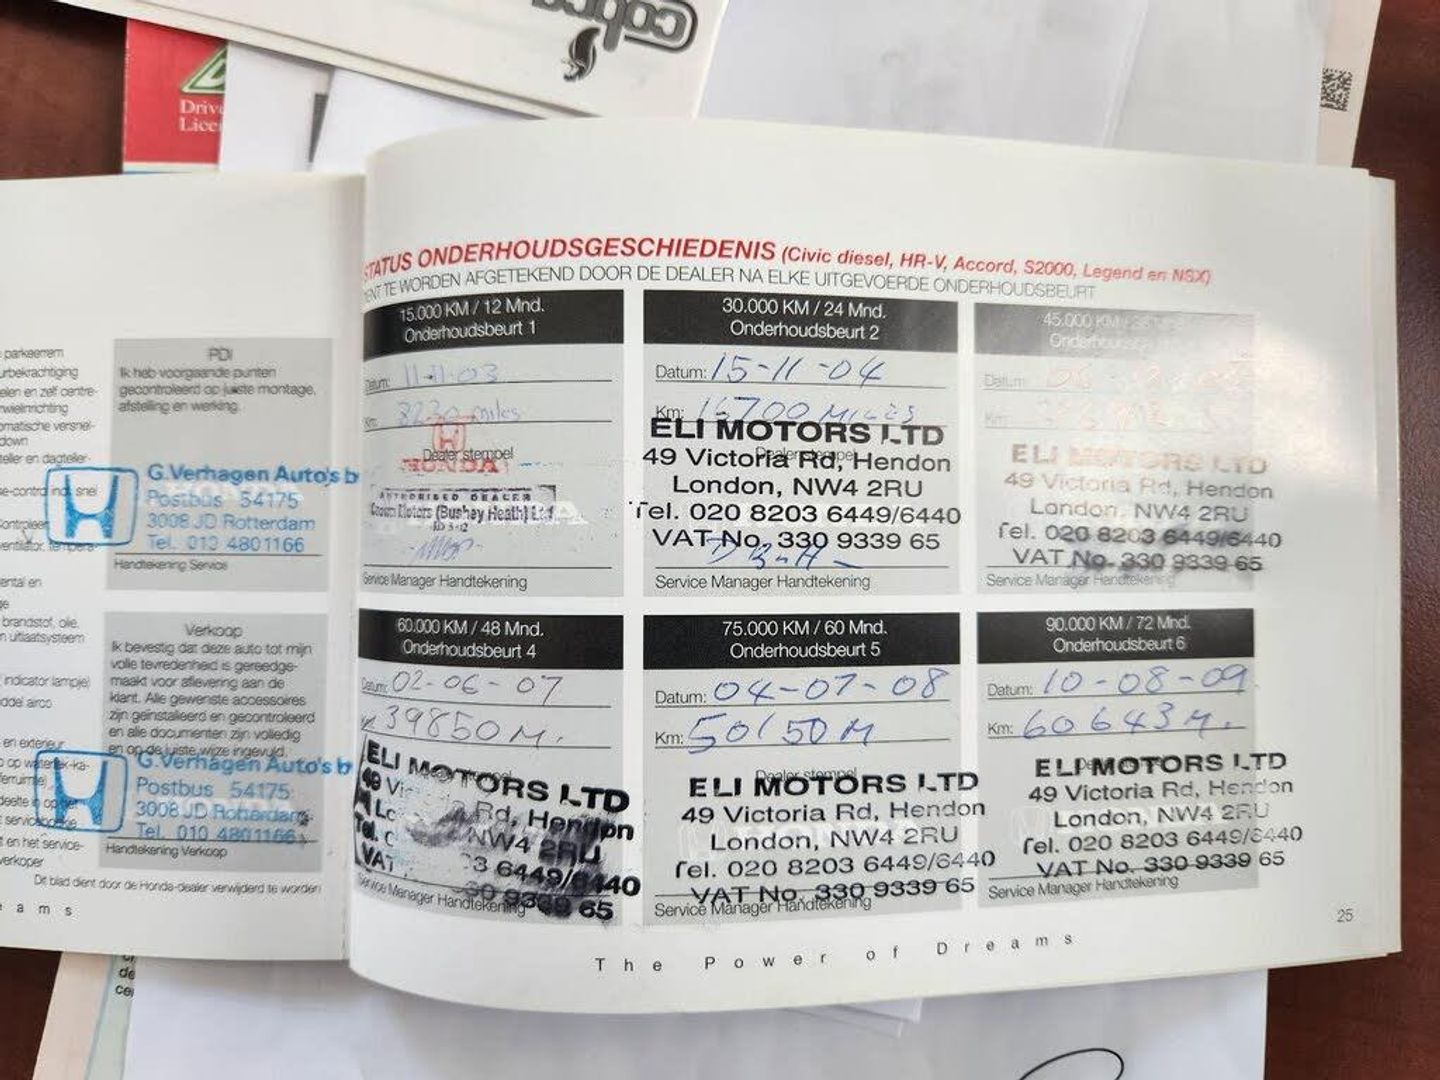 cobra
Drive
Licen
STATUS ONDERHOUDSGESCHIEDENIS (Civic diesel, HR-V, Accord, S2000, Legend en NSX)
TE WORDEN AFGETEKEND DOOR DE DEALER NA ELKE UITGEVOERDE ONDERHOUDSBEURT
parkeerrem
urbekrachtiging
elen en zelf centre-
omatische versnel-
down
teller en dagteller-
ental en
brandstof, olie,
n uitlaatsysteem
indicator lampje)
ddel airco
en exterieur
t en het service-
verkoper
PDI
Ik heb voorgaande punten
gecontroleerd op juiste montage,
afstelling en werking.
G.Verhagen Auto's b
Postbus 54175
3008 JD Rotterdam
Tel. 010 4801166
Handtekening Service
Verkoop
Ik bevestig dat deze auto tot mijn
volle tevredenheid is gereedge-
maakt voor aflevering aan de
klant. Alle gewenste accessoires
zijn geïnstalleerd en gecontroleerd
en alle documenten zijn volledig
en op de juiste wijze ingevuld.
G.Verhagen Auto's b
Postbus 54175
3008 JD Rotterdam
Tel. 010 4801166
Handtekening Verkoop
Dit blad dient door de Honda-dealer verwijderd te worden
e a m s
15.000 KM / 12 Mnd.
Onderhoudsbeurt 1
Datum: 11-11-03
Km: 8230 miles
Dealer stempel
HONDA
AUTHORISED DEALER
Crown Motors (Bushey Heath) Ltd
Service Manager Handtekening
30.000 KM / 24 Mnd.
Onderhoudsbeurt 2
Datum: 15-11-04
Km: 16700 MILES
Dealer stempel
ELI MOTORS LTD
49 Victoria Rd, Hendon
London, NW4 2RU
Tel. 020 8203 6449/6440
VAT No. 330 9339 65
Service Manager Handtekening
45.000 KM
Datum:
Km:
ELI MOTORS LTD
49 Victoria Rd, Hendon
London, NW4 2RU
Tel. 020 8203 6449/6440
VAT No. 330 9339 65
Service Manager Handtekening
60.000 KM / 48 Mnd.
Onderhoudsbeurt 4
Datum: 02-06-07
39850 M.
ELI MOTORS LTD
49 Rd, Hendon
NW4 2RU
3 6449/6440
VAT 30 9339 65
Service Manager Handtekening
75.000 KM / 60 Mnd.
Onderhoudsbeurt 5
Datum: 04-07-08
Km: 50150 M
Dealer stempel
ELI MOTORS LTD
49 Victoria Rd, Hendon
London, NW4 2RU
Tel. 020 8203 6449/6440
VAT No. 330 9339 65
Service Manager Handtekening
90.000 KM / 72 Mnd.
Onderhoudsbeurt 6
Datum: 10-08-09
Km: 60643 M.
ELI MOTORS LTD
49 Victoria Rd, Hendon
London, NW4 2RU
Tel. 020 8203 6449/6440
VAT No. 330 9339 65
Service Manager Handtekening
25
The Power of Dreams